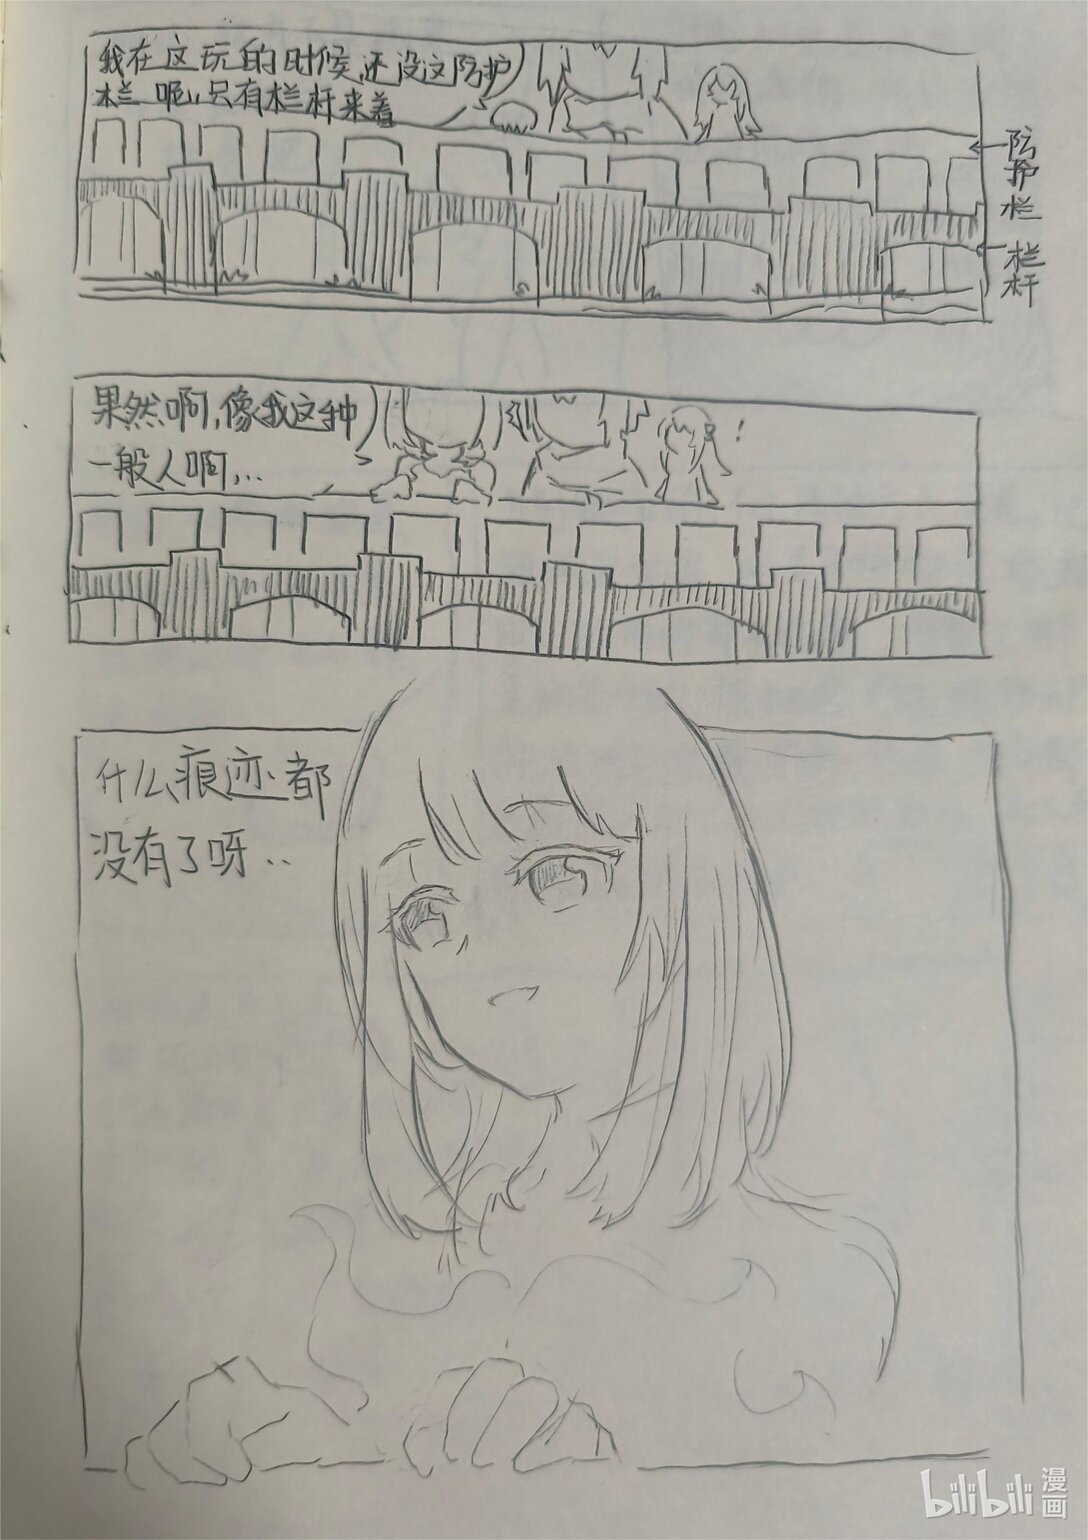 我在这玩的时候,还没这防护
栏呢,,只有栏杆来着
防护栏
栏杆
果然啊,像我这种
一般人啊,...
!
什么痕迹都
没有了呀..
bilibili 漫画